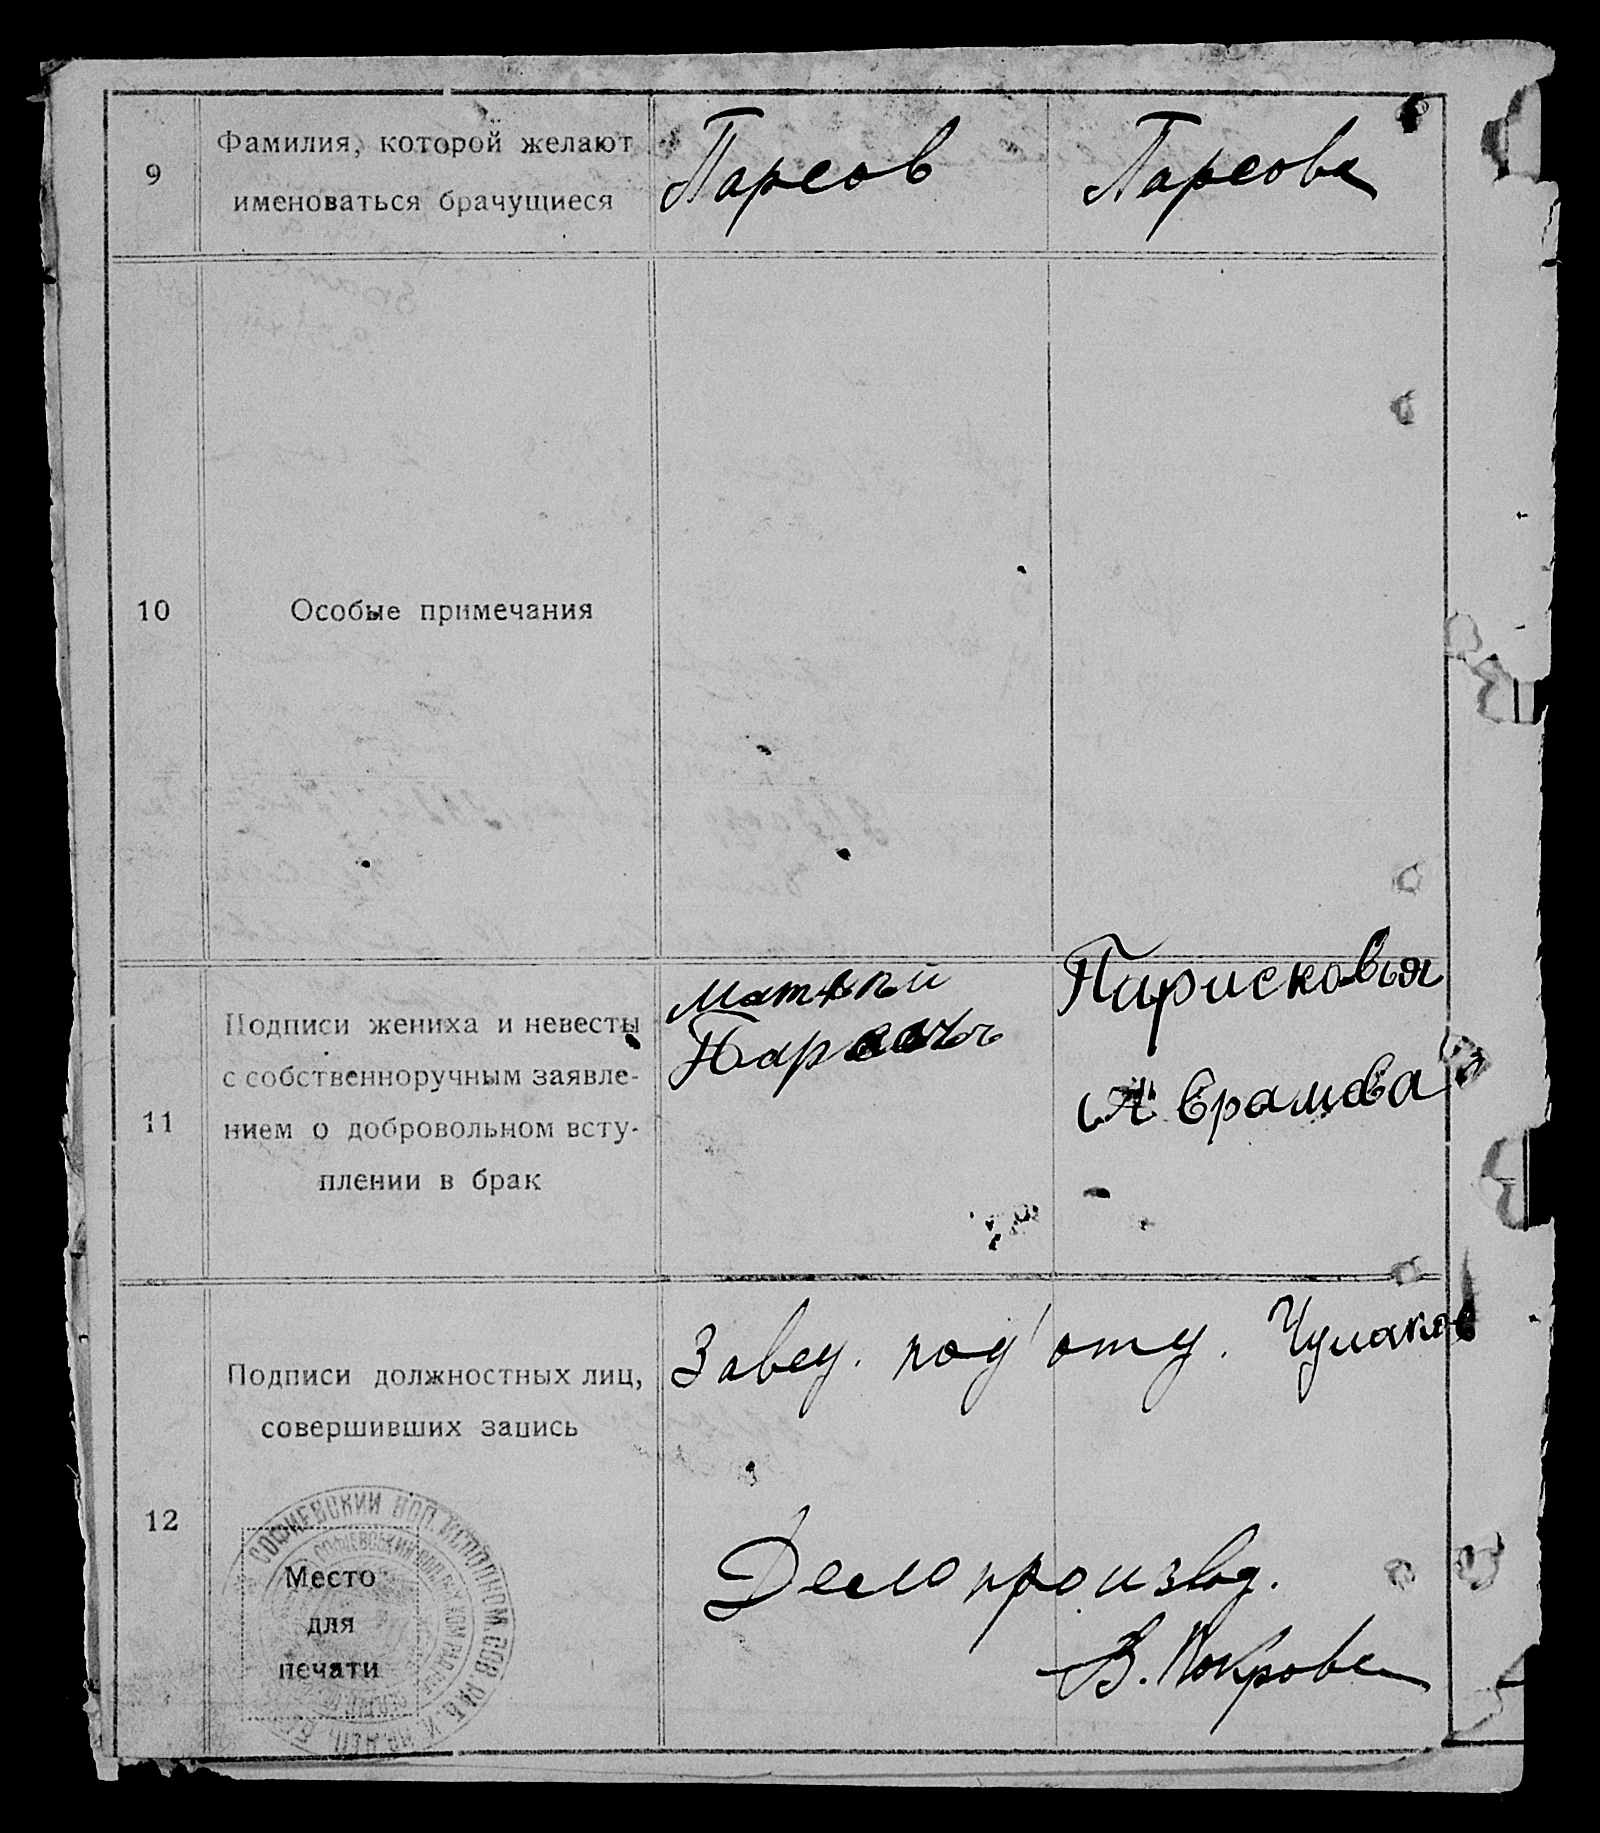 9
Фамилия, которой желают
именоваться брачущиеся
Парсов
Парсова
10
Особые примечания
11
Подписи жениха и невесты
с собственноручным заявле-
нием о добровольном всту-
плении в брак
Парисковья
12
Подписи должностных лиц,
совершивших запись
Завед. под'отд.
Делопроизвод.
В. Покров
СОФИЕВСКИЙ ВОЛ. ИСПОЛКОМ. СОВ. РАБ.
Место
для
печати